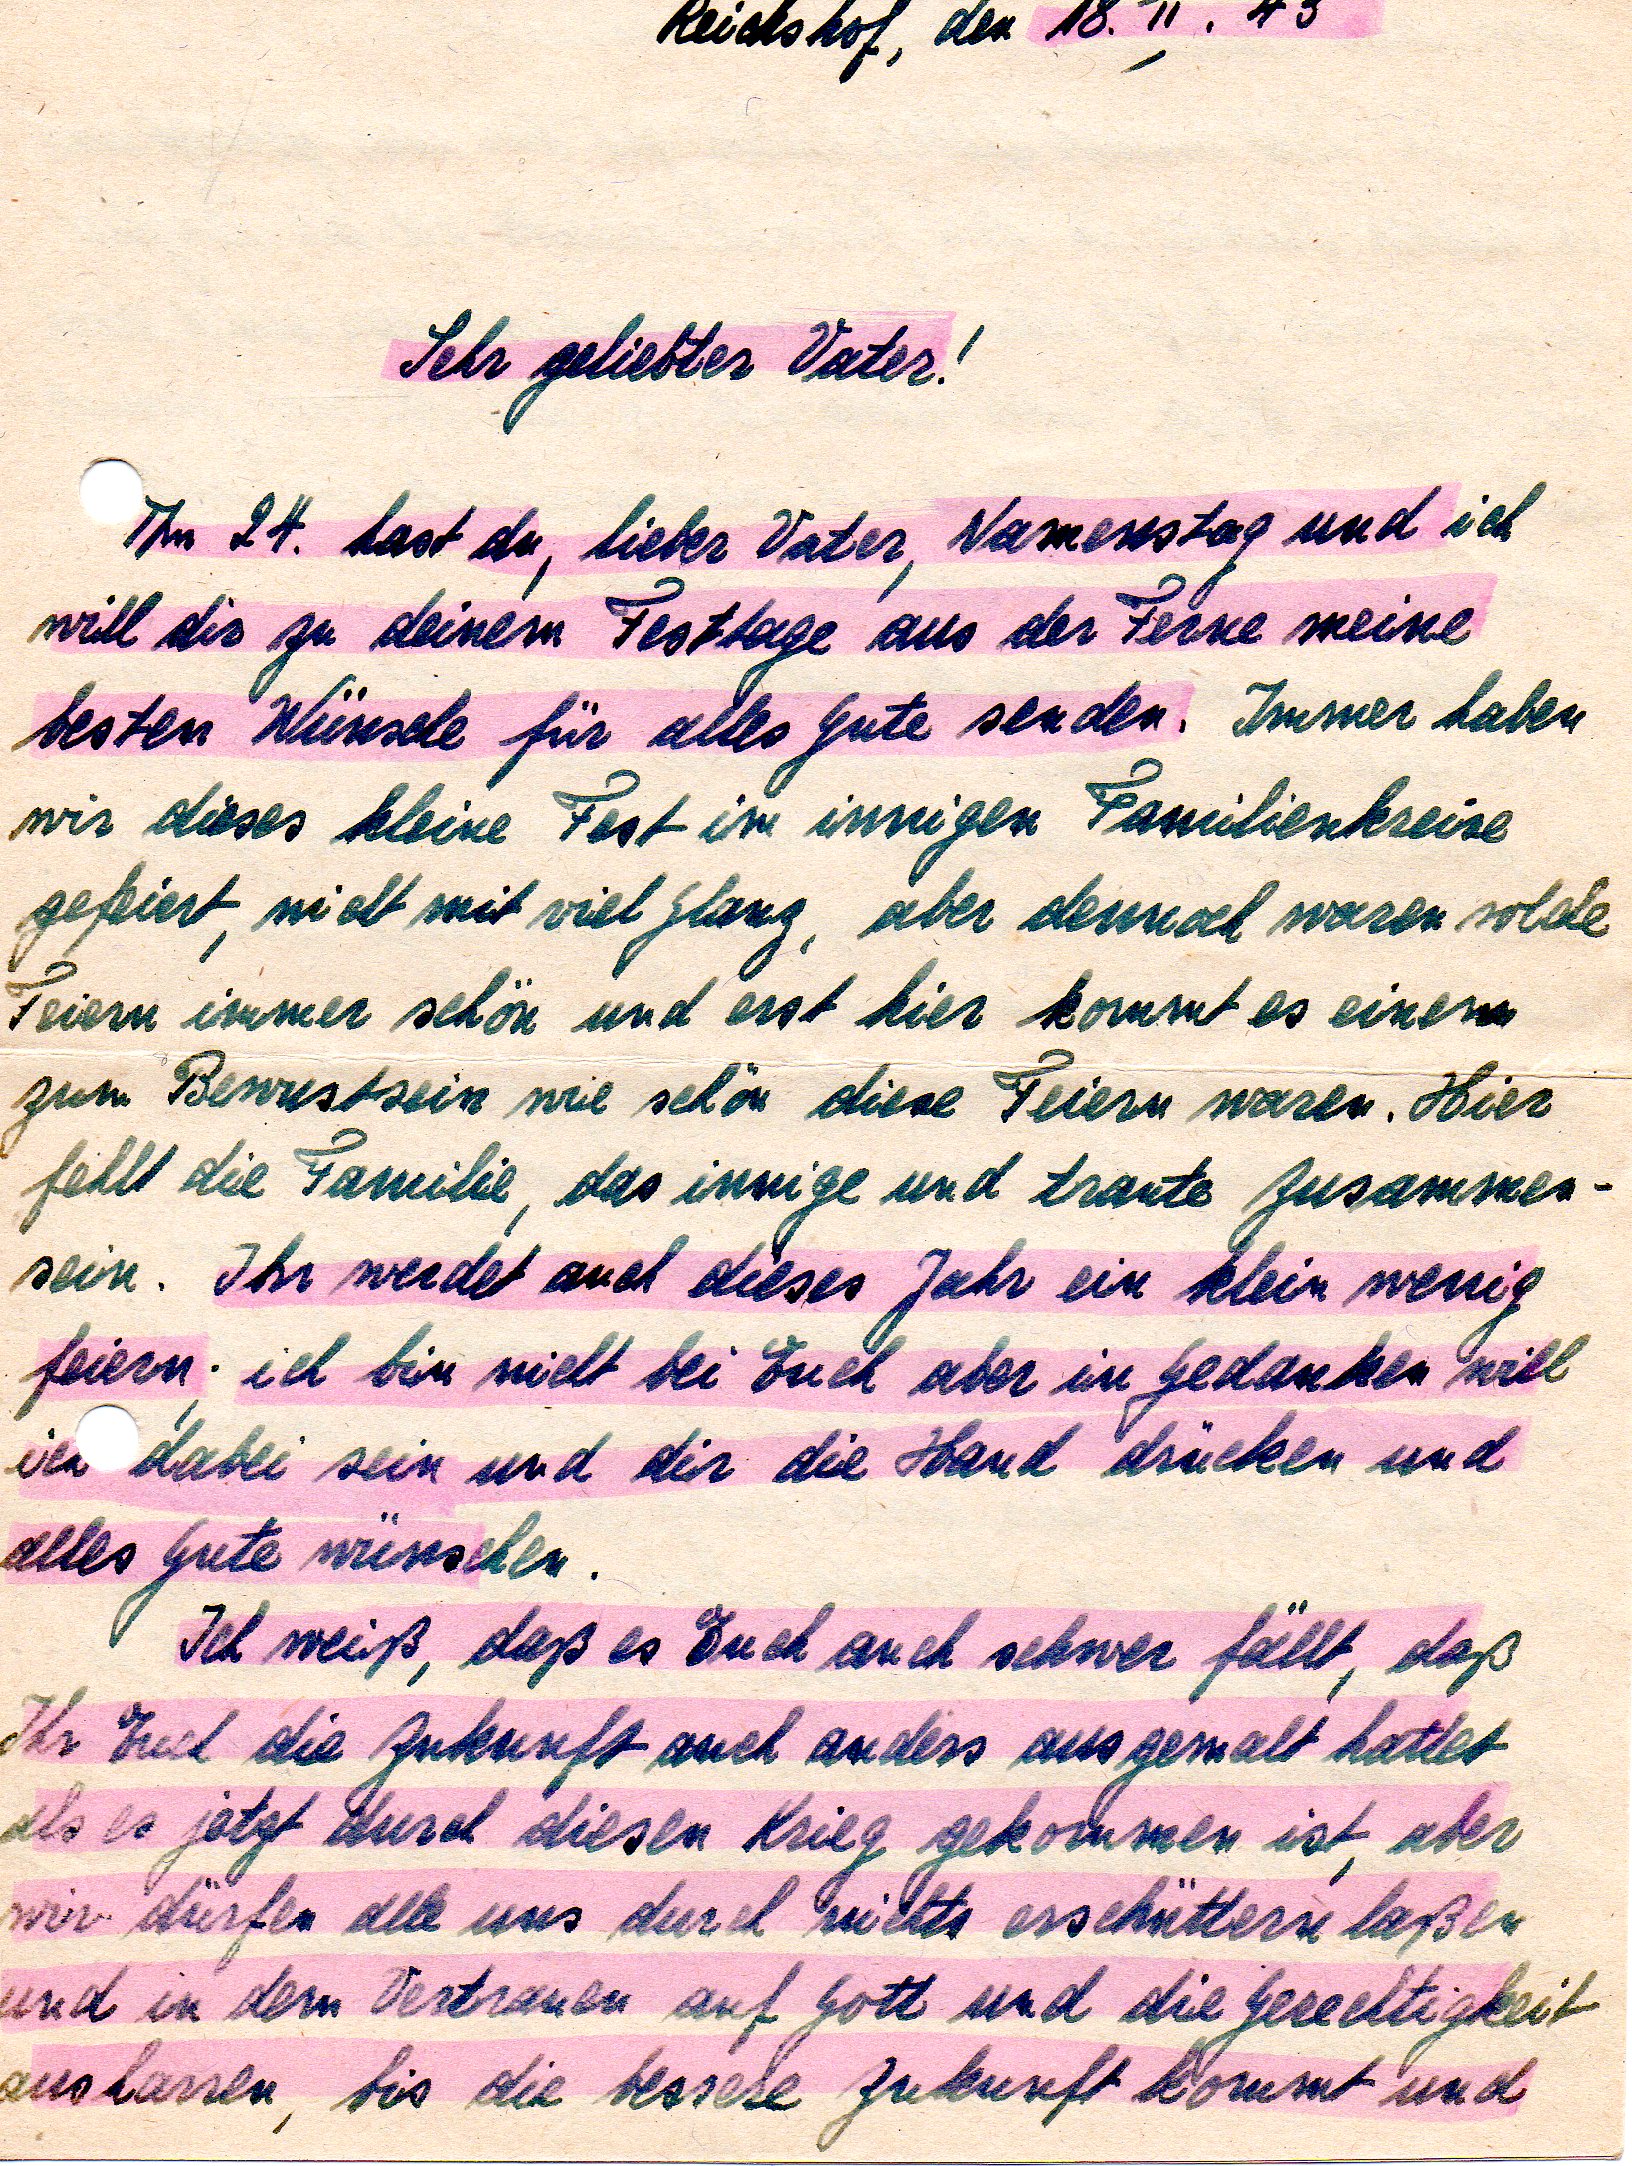 Reichshof, den 18. II. 43
Sehr geliebter Vater!
Am 24. hast du, lieber Vater, Namenstag und ich
will dir zu deinem Festtage aus der Ferne meine
besten Wünsche für alles Gute senden. Immer haben
wir dieses kleine Fest im innigen Familienkreise
gefeiert, nicht mit viel Glanz, aber dennoch waren solche
Feiern immer schön und erst hier kommt es einem
zum Bewustsein wie schön diese Feiern waren. Hier
fehlt die Familie, das innige und traute Zusammen-
sein. Ihr werdet auch dieses Jahr ein klein wenig
feiern; ich bin nicht bei Euch aber in Gedanken will
ich dabei sein und dir die Hand drücken und
alles Gute wünschen.
Ich weiß, daß es Euch auch schwer fällt, daß
Ihr Euch die Zukunft auch anders ausgemalt hattet
als es jetzt durch diesen Krieg gekommen ist, aber
wir dürfen alle uns durch nichts erschüttern laßen
und in dem Vertrauen auf Gott und die Gerechtigkeit
ausharren, bis die bessere Zukunft kommt und